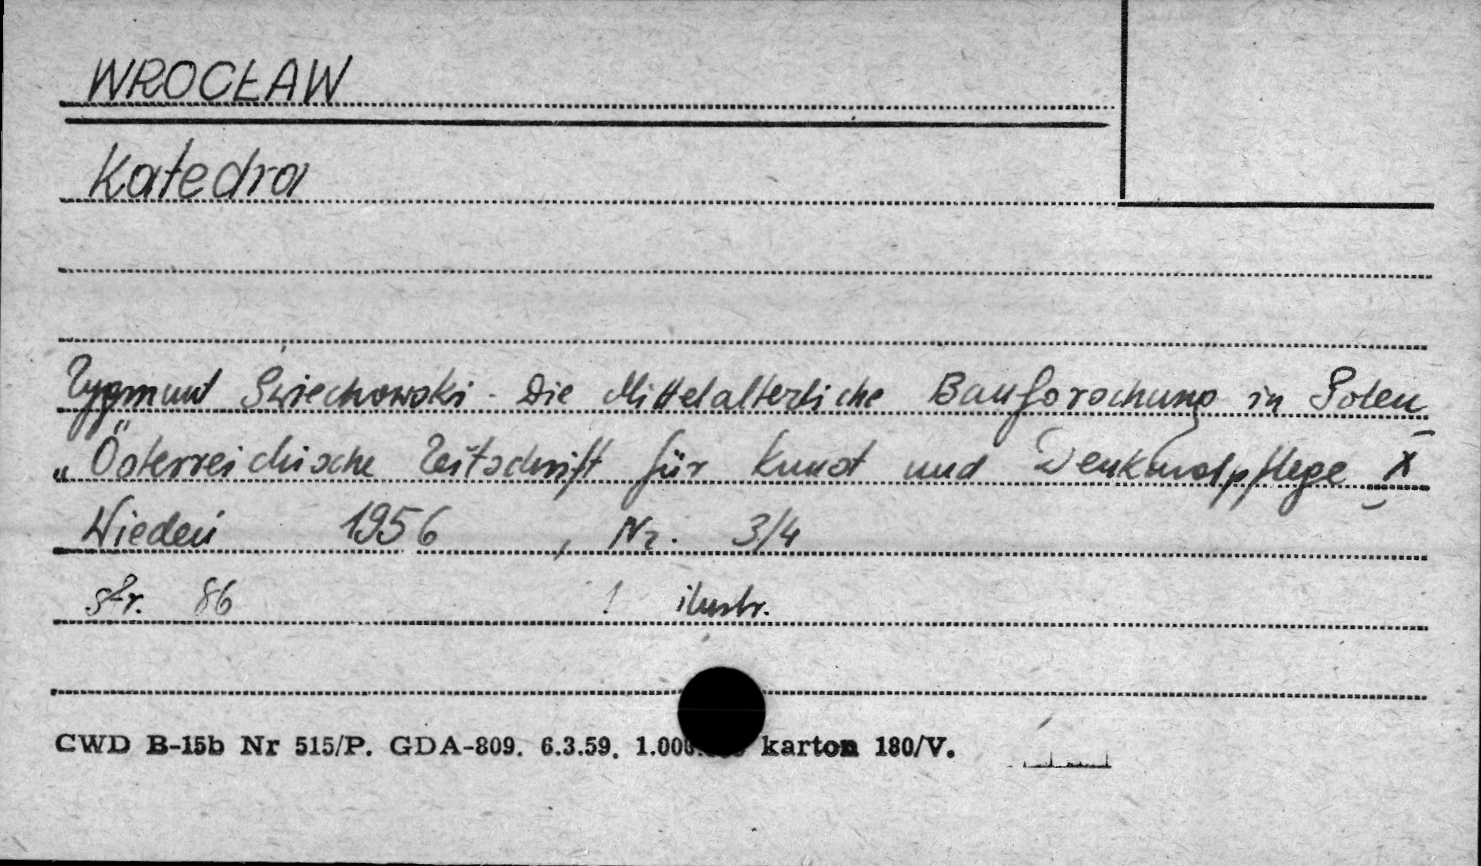 WROCŁAW
Katedra
Zygmunt Swiechowski - Die Mittelalterliche Bauforschung in Polen
„Österreichische Zeitschrift für Kunst und Denkmalpflege X
Wiedeń 1956, Nr. 3/4
str. 86 1 ilustr.
CWD B-15b Nr 515/P. GDA-809. 6.3.59. karton 180/V.